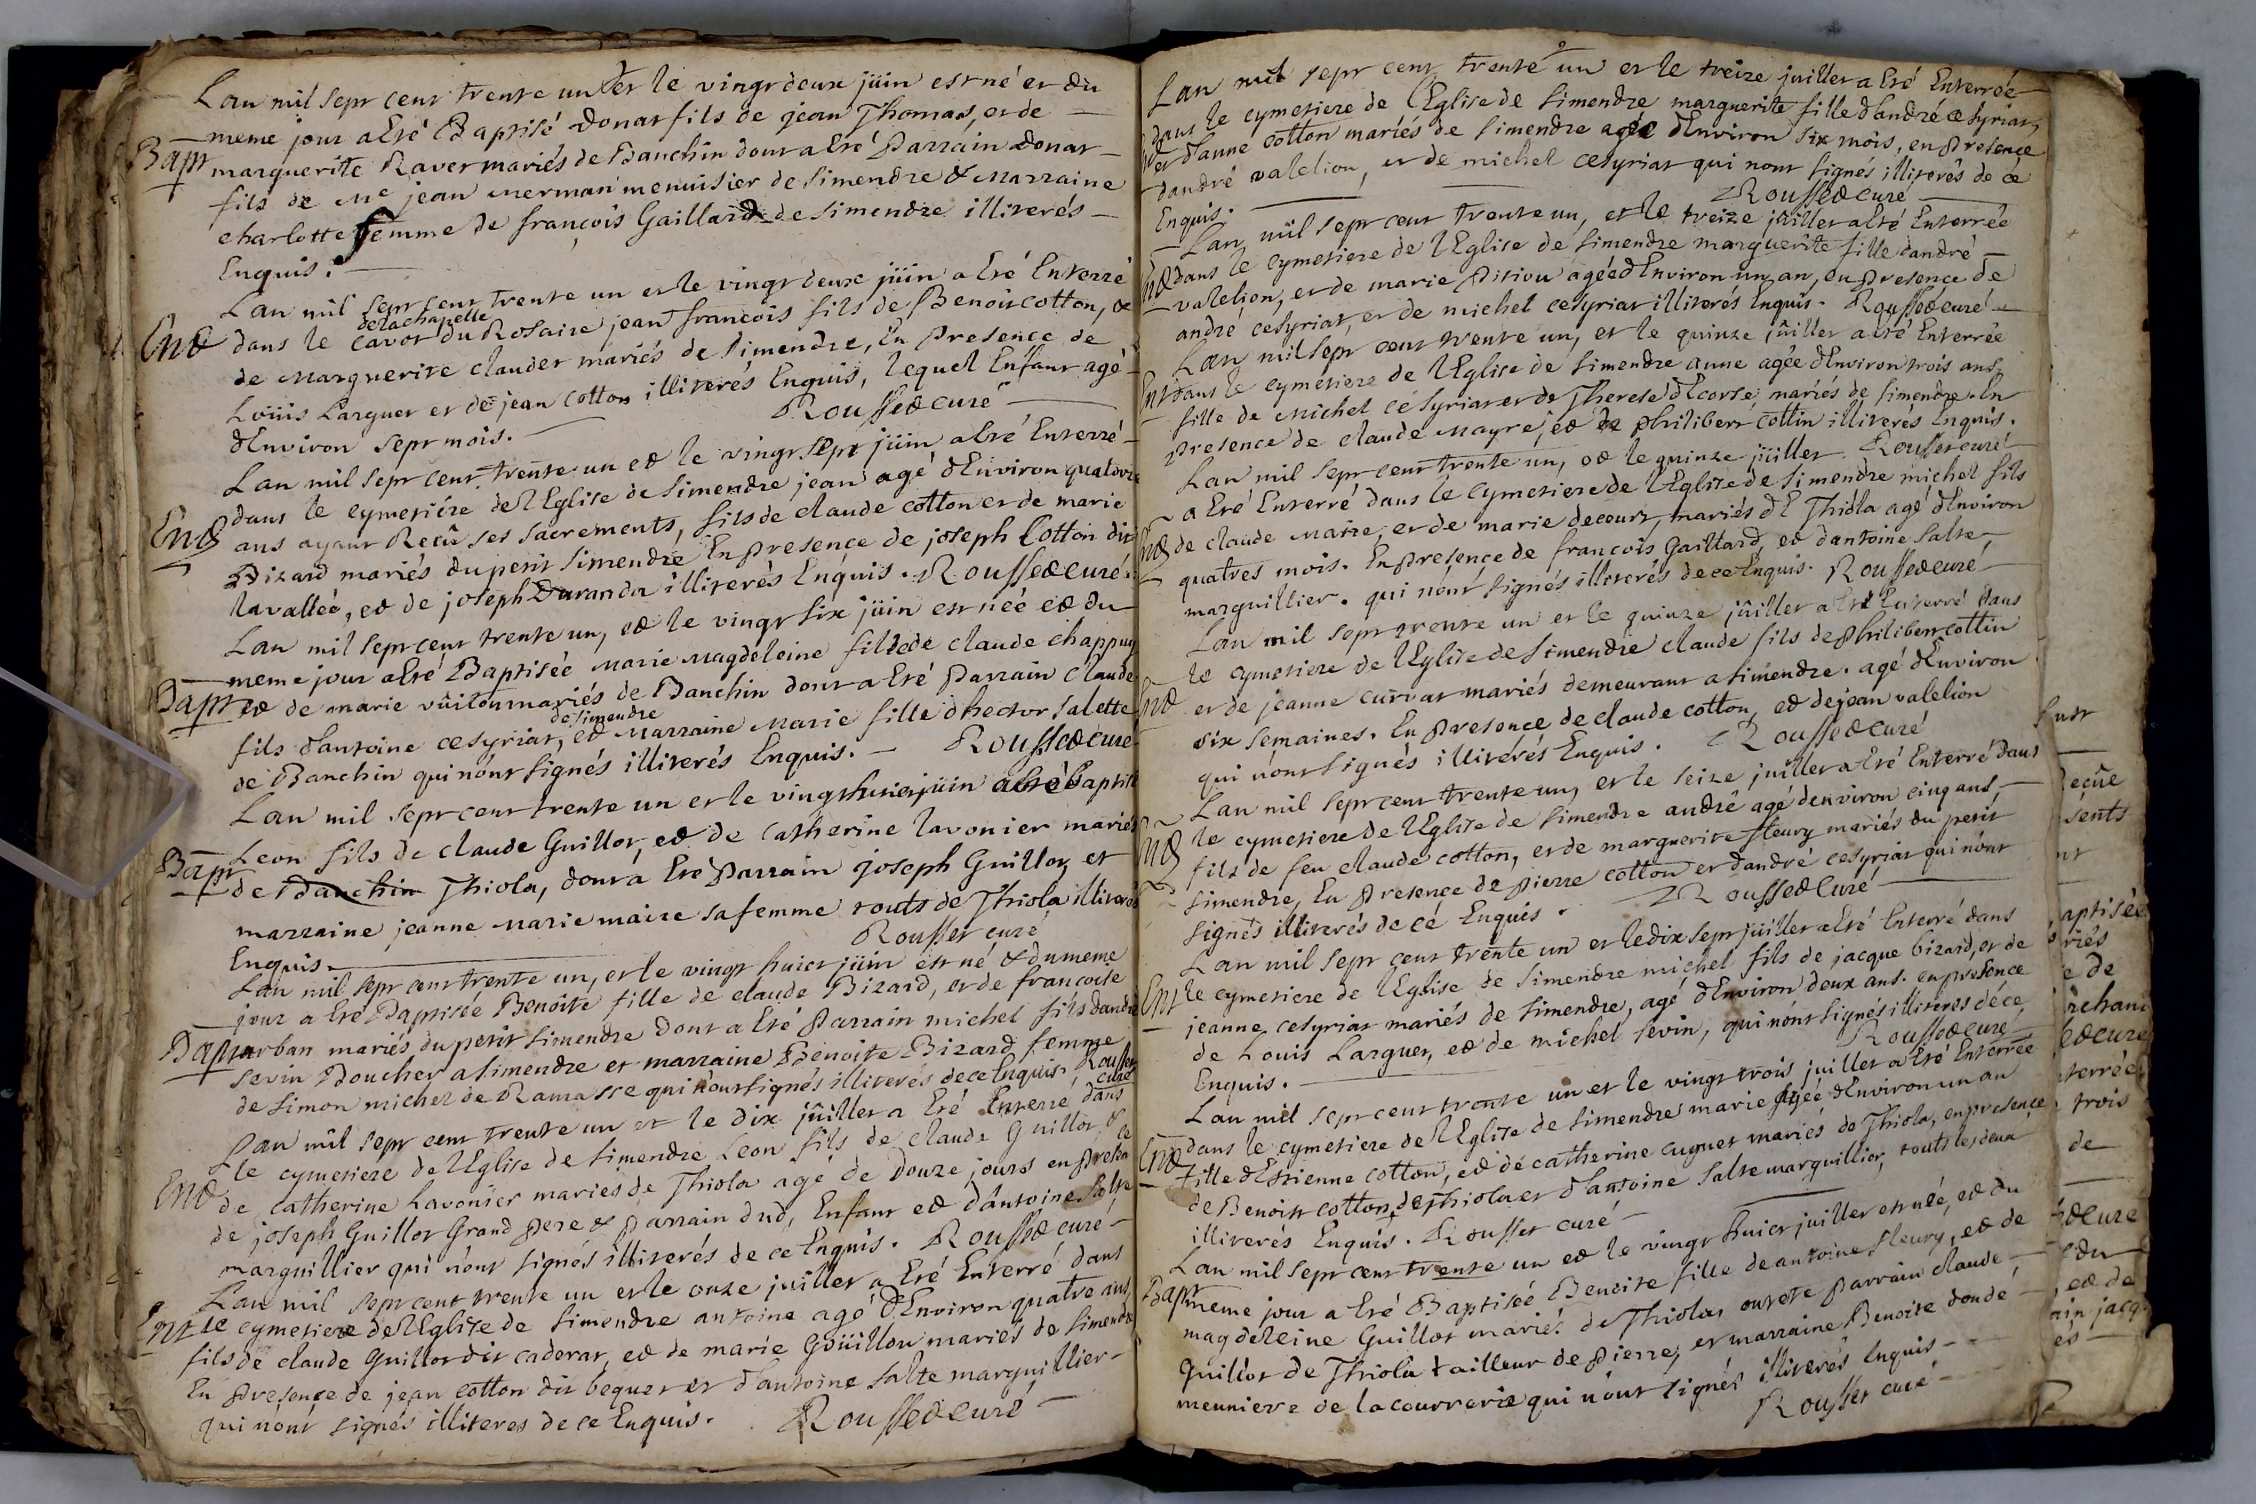 Lan mil sept cent trente un et le vingt deux jüin est né et du
meme jour a Eté Baptisé Donat fils de jean Thomas, et de
Bapt marguerite Ravet mariés de Banchin dont a Eté Parrain Donat
fils de Me jean merman menuisier de Simendre & Marraine
charlotte femme de françois Gaillard de Simendre illiterés
Enquis.
Lan mil sept cent trente un et le vingt deux jüin a Eté Enterré
de la chapelle
Ent dans le cavot du Rosaire jean françois fils de Benoit cotton, &
de Marguerite claudet mariés de Simendre, En Presence de
Loüis Larguet et de jean cotton illiterés Enquis, lequel Enfant agé
dEnviron sept mois. Rousset curé
Lan mil sept cent trente un et le vingt sept jüin a Eté Enterré
dans le cymetiére de lEglise de Simendre jean agé dEnviron quatorze
Ent ans ayant Reçû ses sacrements, fils de claude cotton et de marie
Bizard mariés du petit Simendre En presence de joseph Cotton dit
lavallée, et de joseph Durandin illiterés Enquis. Rousset curé.
Lan mil sept cent trente un, et le vingt six jüin est née et du
meme jour a Eté Baptisée Marie Magdeleine fille de claude chappuy
Bapt et de marie vüiton mariés de Banchin dont a Eté Parrain claude
de Simendre
fils dantoine cesyriat, et Marraine Marie fille dhector Salette
de Banchin qui nont signés illiterés Enquis. Rousset curé
Lan mil sept cent trente un et le vingt huict jüin a Eté baptisé
Leon fils de claude Guillot, et de Catherine lavonier mariés
Bapt de Banchin Thiola, dont a Eté Parrain joseph Guillot, et
marraine jeanne Marie maire sa femme touts de Thiola illiterés
Enquis. Rousset curé
Lan mil sept cent trente un, et le vingt huict jüin est né & du meme
jour a Eté Baptisée Benoite fille de claude Bizard, et de françoise
Bapt urban mariés du petit Simendre dont a Eté Parrain michel fils dandré
sevin Boucher a Simendre et marraine Benoite Bizard femme
de Simon michel de Ramasse qui nont signés illiterés de ce Enquis. Rousset
curé
Lan mil sept cent trente un et le dix jüillet a Eté Enterré dans
le cymetiere de lEglise de Simendre Leon fils de claude Guillot, &
Ent de Catherine Lavonier mariés de Thiola agé de douze jours en presence
de joseph Guillot Grand pere & Parrain dud, Enfant et dantoine Salte
marguillier qui nont signés illiterés de ce Enquis. Rousset curé
Lan mil sept cent trente un et le onze juillet a Eté Enterré dans
Ent le cymetiere de lEglise de Simendre antoine agé dEnviron quatre ans,
fils de claude Guillot dit caderat, et de marie Goüillon mariés de Simendre
En presence de jean cotton dit bequet et dantoine Salte marguillier
qui nont signés illiteres de ce Enquis. Rousset Curé
Lan mil sept cent trente un et le treize juillet a Eté Enterrée
dans le cymetiere de lEglise de Simendre marguerite fille dandré cesyriat,
et danne cotton mariés de Simendre agée dEnviron six mois, en presence
dandré valelion, et de michel cesyriat qui nont signés illiterés de ce
Enquis. Rousset curé
Lan mil sept cent trente un, et le treize jüillet a Eté Enterrée
Ent dans le cymetiere de lEglise de Simendre marguerite fille dandré
valelion, et de marie Pitiou agée dEnviron un an, en presence de
andré cesyriat, et de michel cesyriat illiterés Enquis. Rousset curé
Lan mil sept cent trente un, et le quinze jüillet a Eté Enterrée
Ent dans le cymetiere de lEglise de Simendre anne agée dEnviron trois ans,
fille de Michel cesyriat et de Therese dEcorse, mariés de Simendre. En
presence de claude Mayre, et de philibert cottin illiterés Enquis.
Lan mil sept cent trente un, et le quinze jüillet Rousset curé
a Eté Enterré dans le Cymetiere de lEglise de Simendre michel fils
Ent de claude Maire, et de marie decourt, mariés dE Thiola agé dEnviron
quatres mois. En presence de françois Gaillard, et dantoine Salte,
marguillier. qui nont signés illiterés de ce Enquis. Rousset curé
Lan mil sept trente un et le quinze jüillet a Eté Enterré dans
le cymetiere de lEglise de Simendre claude fils de philibert cottin
Ent et de jeanne curvat mariés demeurant a Simendre. agé dEnviron
six semaines. En presence de claude cotton, et de jean valelion
qui nont signés illiterés Enquis. Rousset curé
Lan mil sept cent trente un, et le seize juillet a Eté Enterré dans
Ent le cymetiere de lEglise de Simendre andré agé denviron cinq ans,
fils de feu claude cotton, et de marguerite fleury mariés du petit
Simendre, En Presence de pierre cotton et dandré cesyriat qui nont
signés illiterés de ce Enquis. Rousset Curé
Lan mil sept cent trente un et le dix sept jüillet a Eté Enterré dans
Ent le cymetiere de lEglise de Simendre michel fils de jacque bizard, et de
jeanne cesyriat mariés de Simendre, agé dEnviron deux ans. en presence
de Louis Larguet, et de michel sevin, qui nont signés illiteres de ce
Enquis. Rousset curé
Lan mil sept cent trente un et le vingt trois juillet a Eté Enterrée
Ent dans le cymetiere de lEglise de Simendre marie agée dEnviron un an
fille dEtienne cotton, et de catherine cuynet mariés de Thiola, en presence
de Benoist cotton de Thiola et dantoine Salte marguillier, touts les deux
illiterés Enquis. Rousset curé
Lan mil sept cent trente un et le vingt huict juillet est née, et du
Bapt meme jour a Eté Baptisée Benoite fille de antoine fleury, et de
magdeleine Guillot mariés de Thiola, ont eté Parrain claude
Guillot de Thiola tailleur de pierre, et marraine Benoite dondé
meuniere de la courrerie qui nont signés illiterés Enquis
Rousset curé